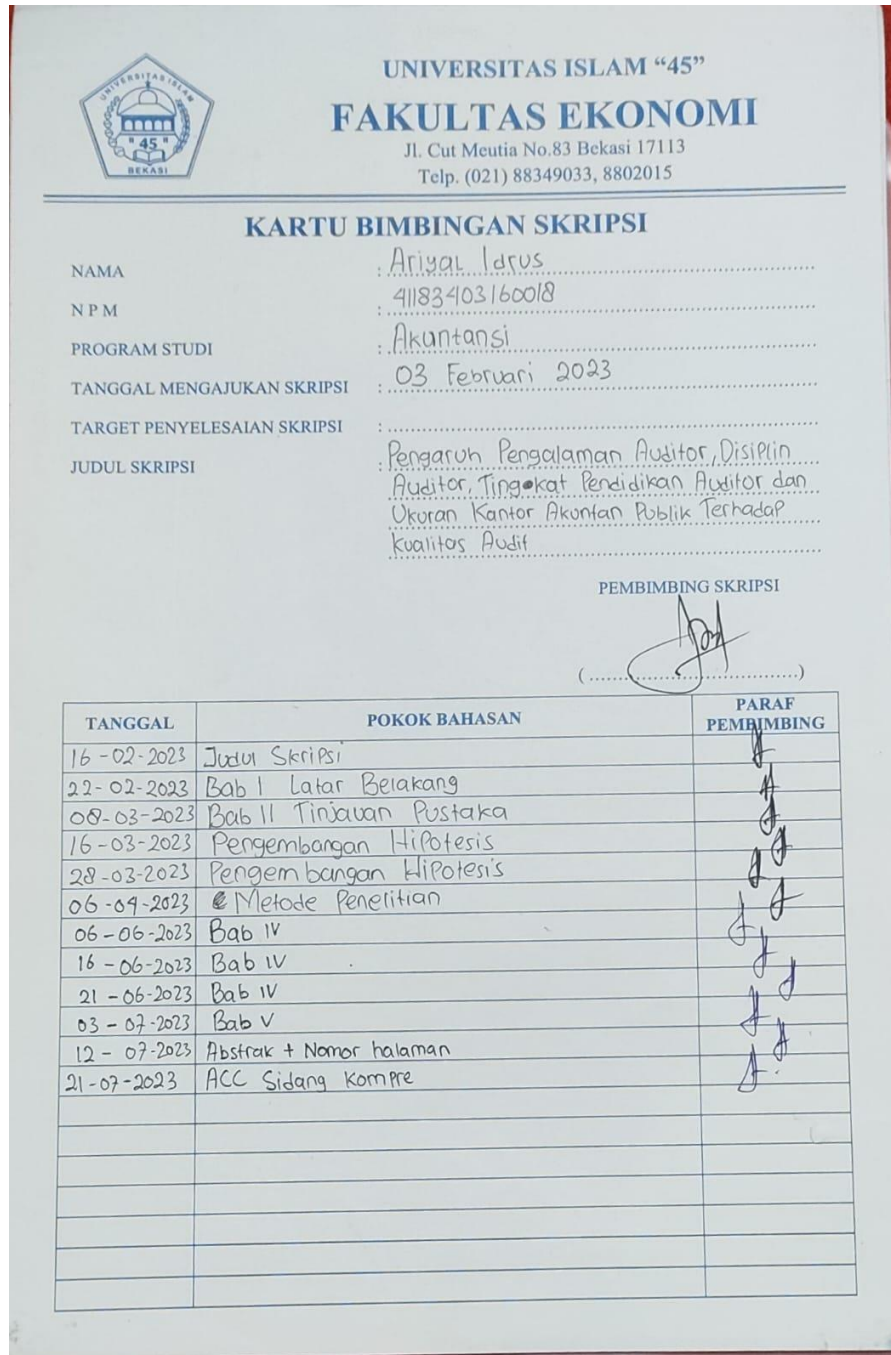 UNIVERSITAS ISLAM
"45"
BEKASI
UNIVERSITAS ISLAM “45”
FAKULTAS EKONOMI
Jl. Cut Meutia No.83 Bekasi 17113
Telp. (021) 88349033, 8802015
KARTU BIMBINGAN SKRIPSI
NAMA : Ariyal Idrus
N P M : 41183403160018
PROGRAM STUDI : Akuntansi
TANGGAL MENGAJUKAN SKRIPSI : 03 Februari 2023
TARGET PENYELESAIAN SKRIPSI :
JUDUL SKRIPSI : Pengaruh Pengalaman Auditor, Disiplin
Auditor, Tingkat Pendidikan Auditor dan
Ukuran Kantor Akuntan Publik Terhadap
Kualitas Audit
PEMBIMBING SKRIPSI
(..............................)
TANGGAL POKOK BAHASAN PARAF PEMBIMBING
16-02-2023 Judul Skripsi
22-02-2023 Bab I Latar Belakang
08-03-2023 Bab II Tinjauan Pustaka
16-03-2023 Pengembangan Hipotesis
28-03-2023 Pengembangan Hipotesis
06-04-2023 Metode Penelitian
06-06-2023 Bab IV
16-06-2023 Bab IV
21-06-2023 Bab IV
03-07-2023 Bab V
12-07-2023 Abstrak + Nomor halaman
21-07-2023 ACC Sidang Kompre